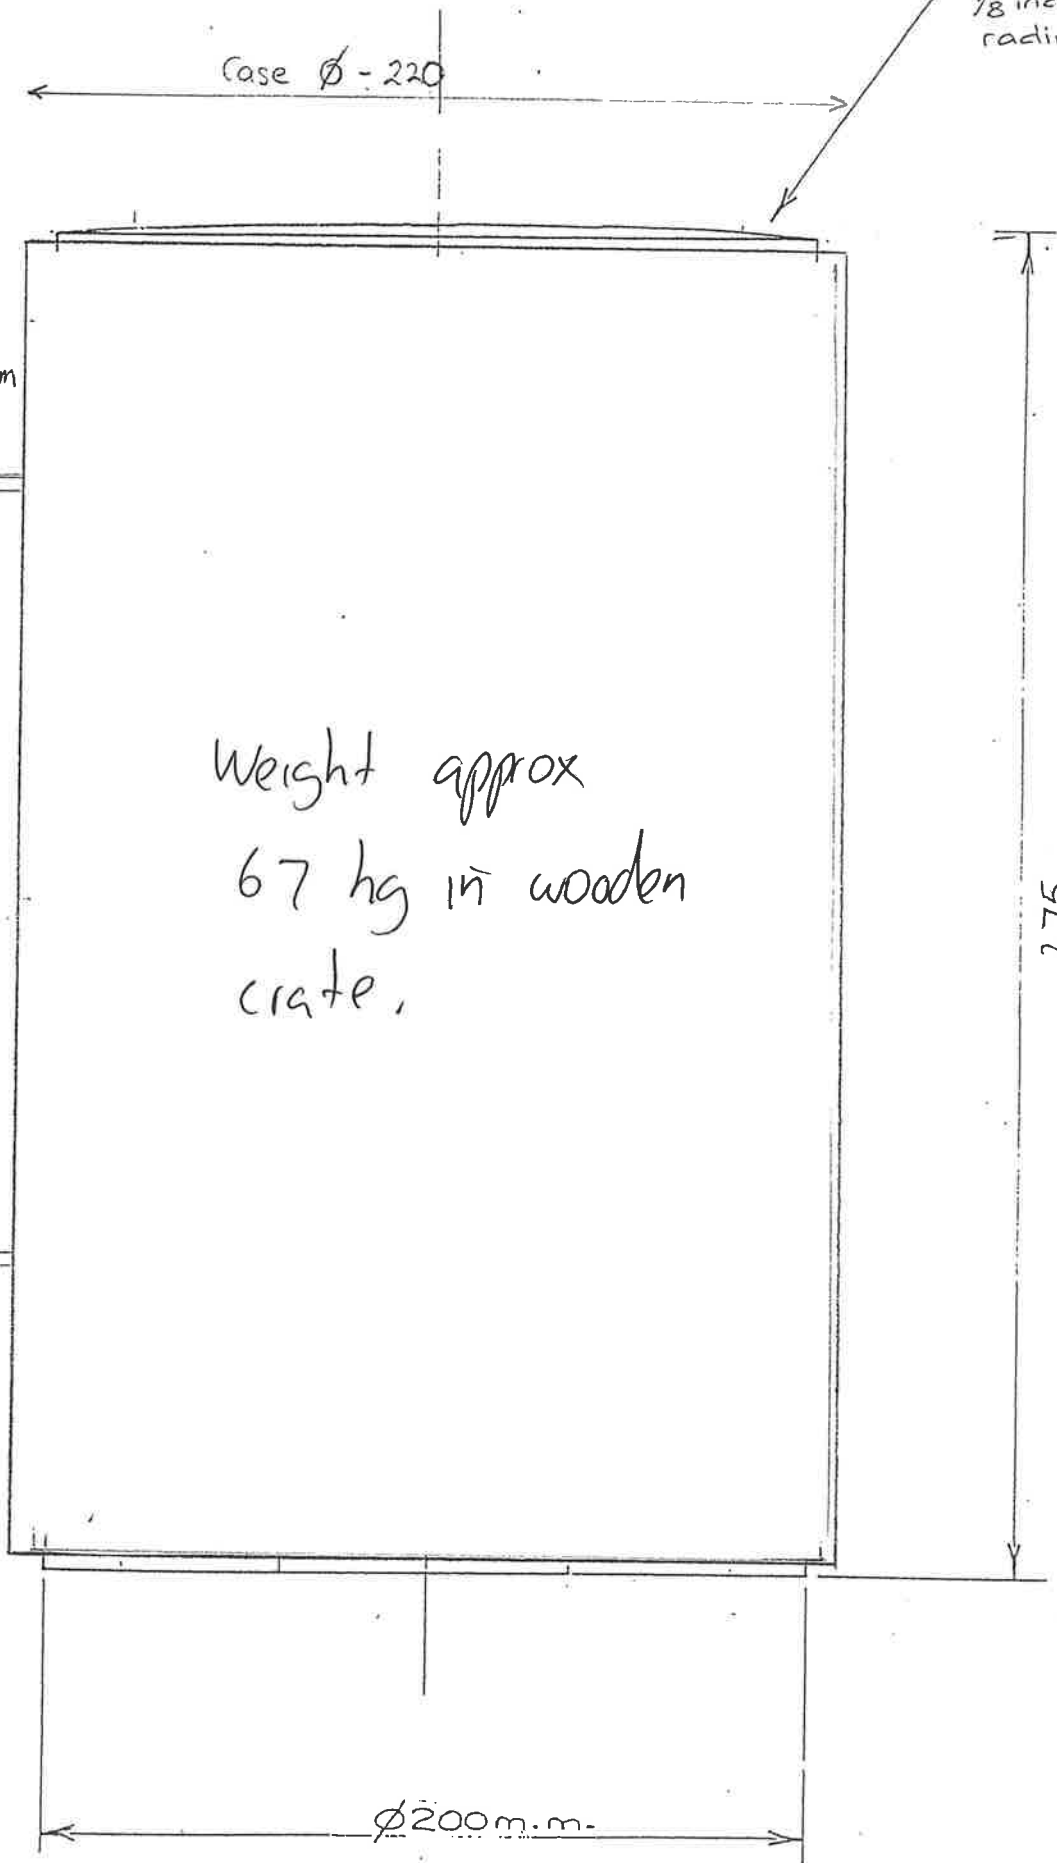 radi
Case Ø - 220
m
Weight approx
67 kg in wooden
crate.
Ø200m.m.